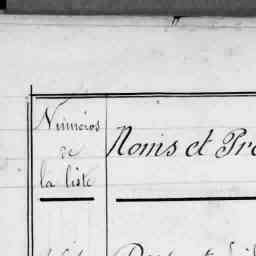 Numéros
de
la liste
Noms et Pré